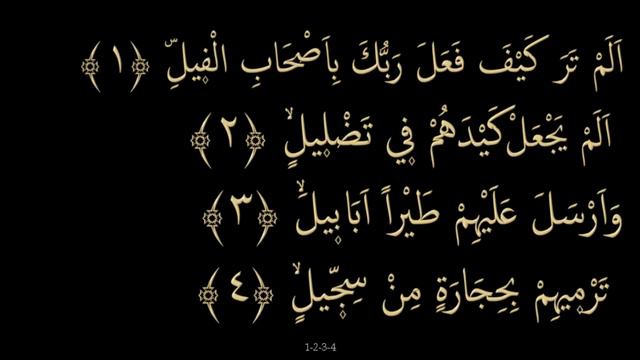 اَلَمْ تَرَ كَيْفَ فَعَلَ رَبُّكَ بِاَصْحَابِ الْفٖيلِؕ ﴿١﴾
اَلَمْ يَجْعَلْ كَيْدَهُمْ فٖي تَضْلٖيلٍۙ ﴿٢﴾
وَاَرْسَلَ عَلَيْهِمْ طَيْراً اَبَابٖيلَۙ ﴿٣﴾
تَرْمٖيهِمْ بِحِجَارَةٍ مِنْ سِجّٖيلٍۙ ﴿٤﴾
1-2-3-4